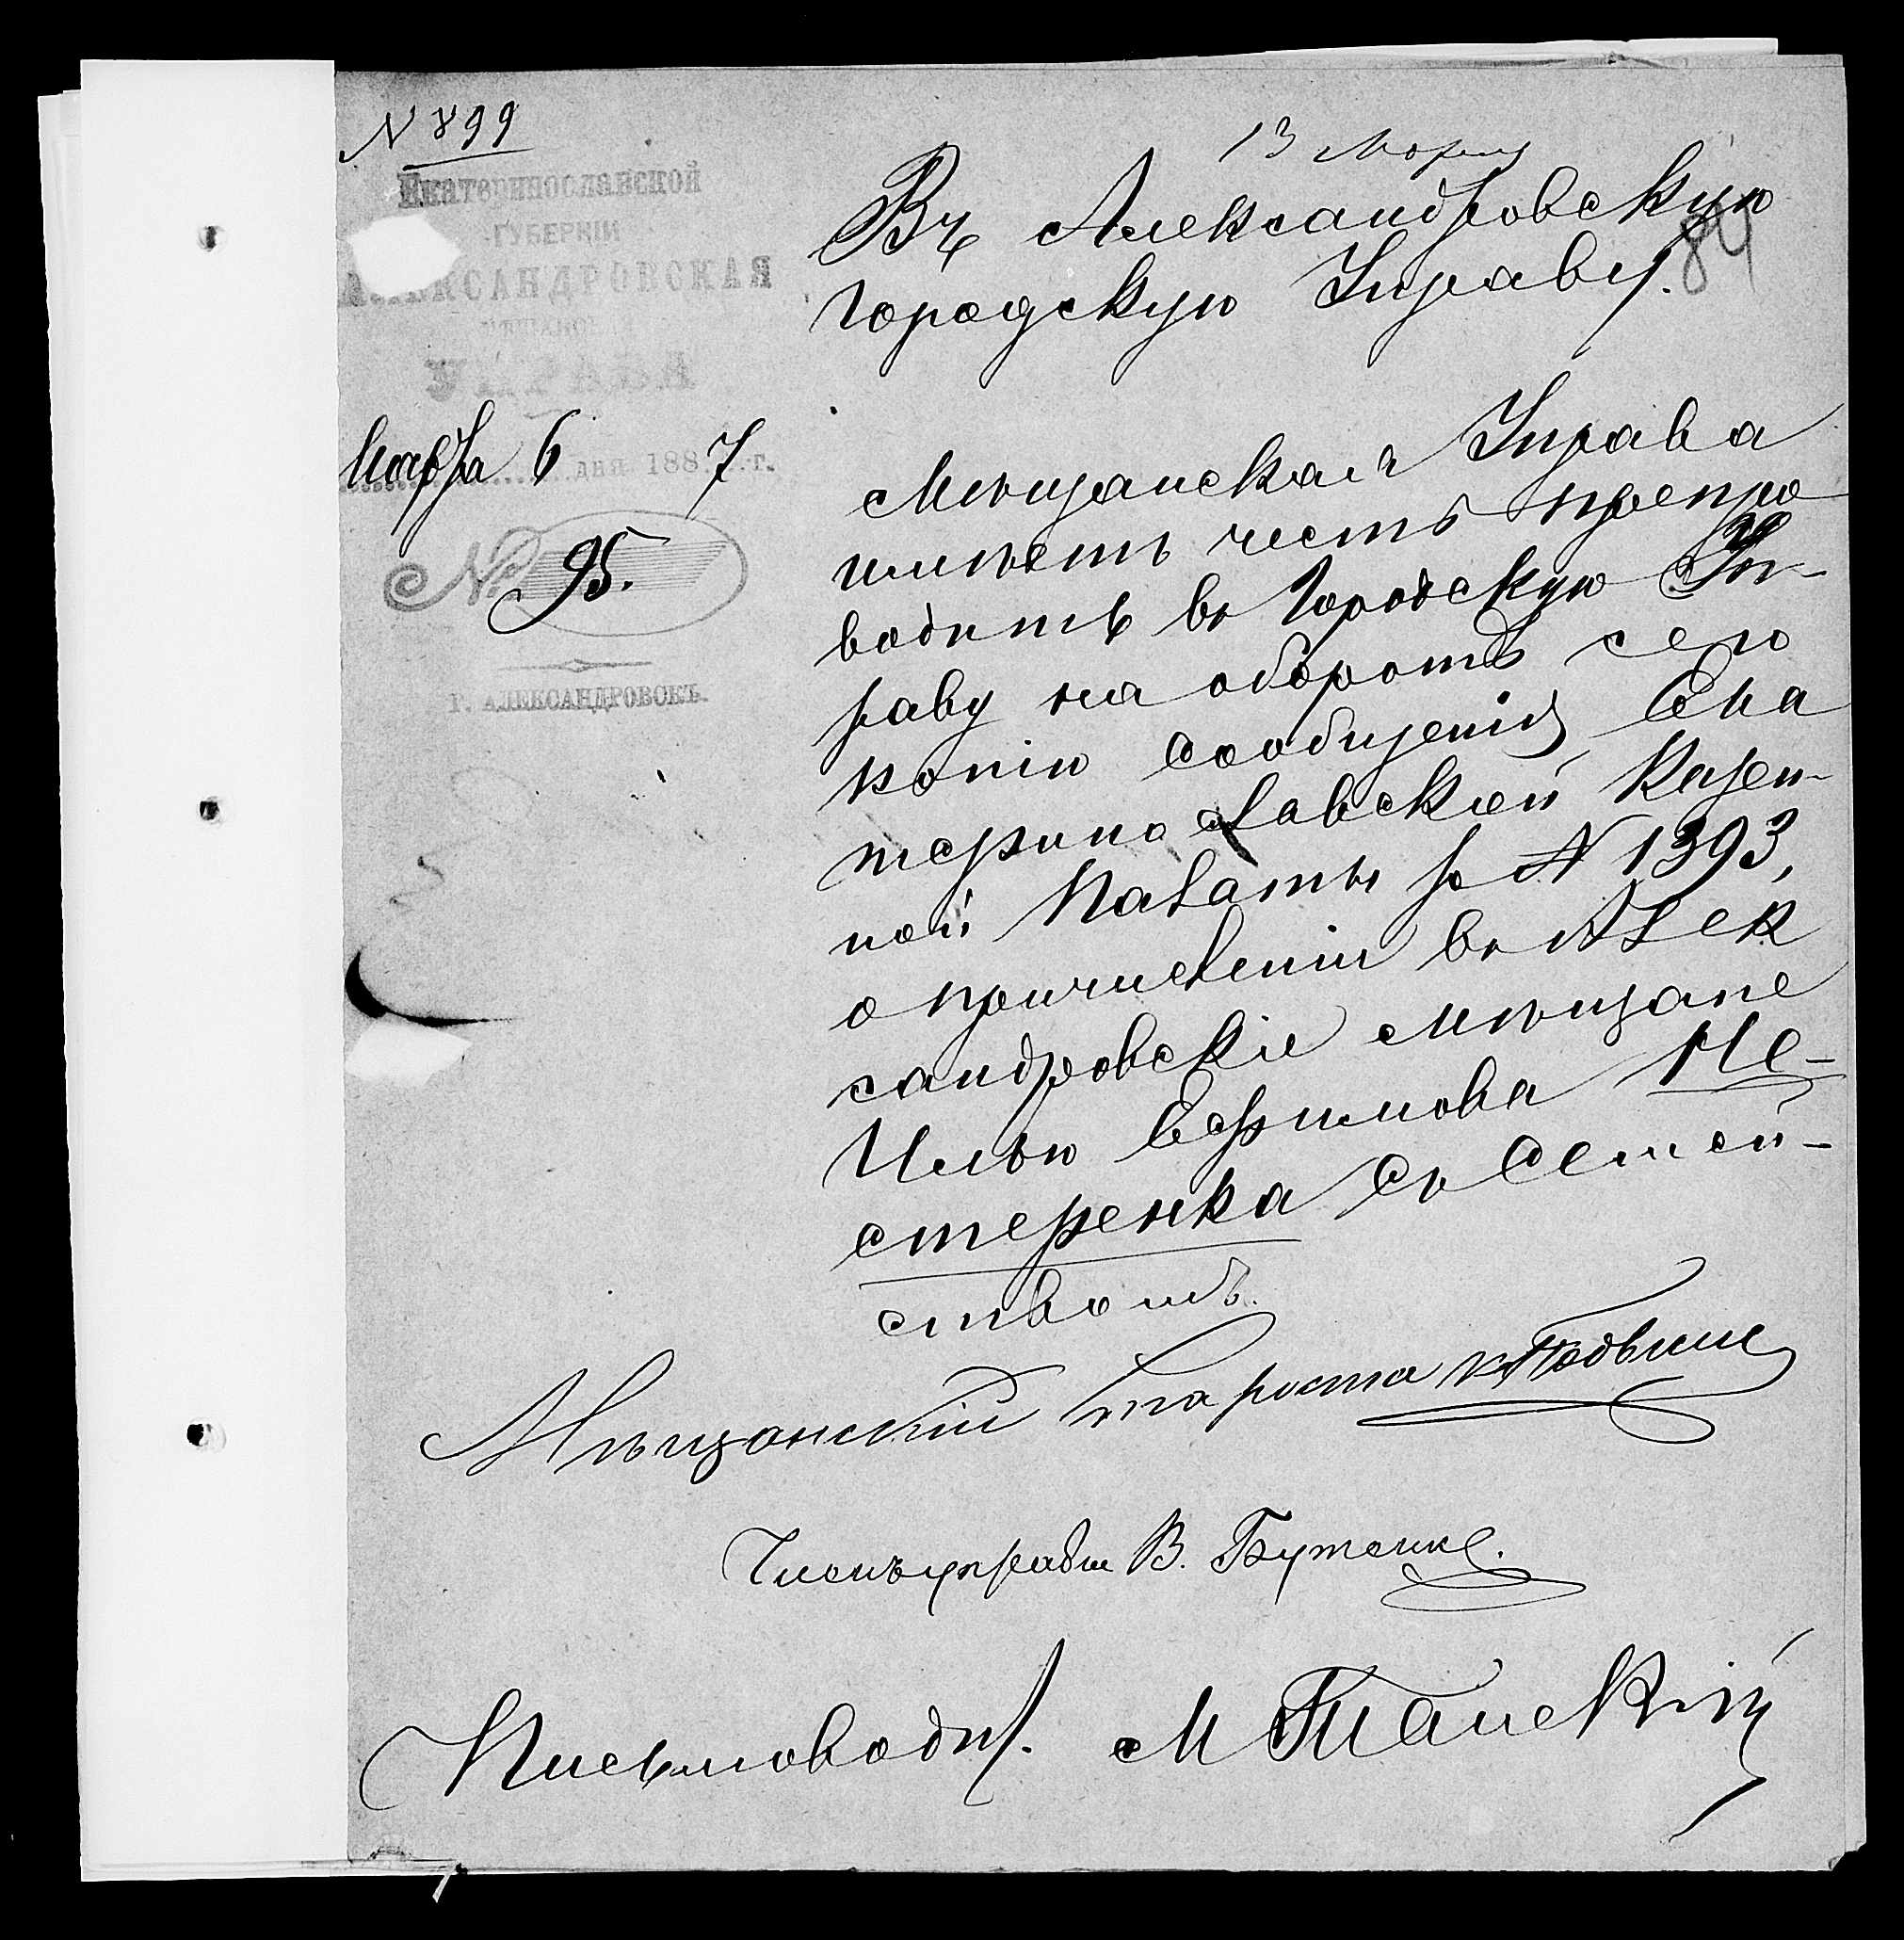 N 899
Екатеринославской
ГУБЕРНІИ
АЛЕКСАНДРОВСКАЯ
УПРАВА
Марта 6 дня 1887 г.
№ 95.
Г. АЛЕКСАНДРОВСКЪ.
13 Марта
84
Въ Александровскую
Городскую Управу.
Мѣщанская Управа
имѣетъ честь препро
водить въ Городскую Уп-
раву на оборотѣ сего
копію Сообщенія Ека
теринославской Казен-
ной Палаты за N 1393,
о причисленіи въ Алек
сандровскіе мѣщане
Илью Ефимова Не-
стеренка съ Семей-
ствомъ.
Мѣщанскій Староста
Членъ управы В. Бутенко.
Письмоводит. М